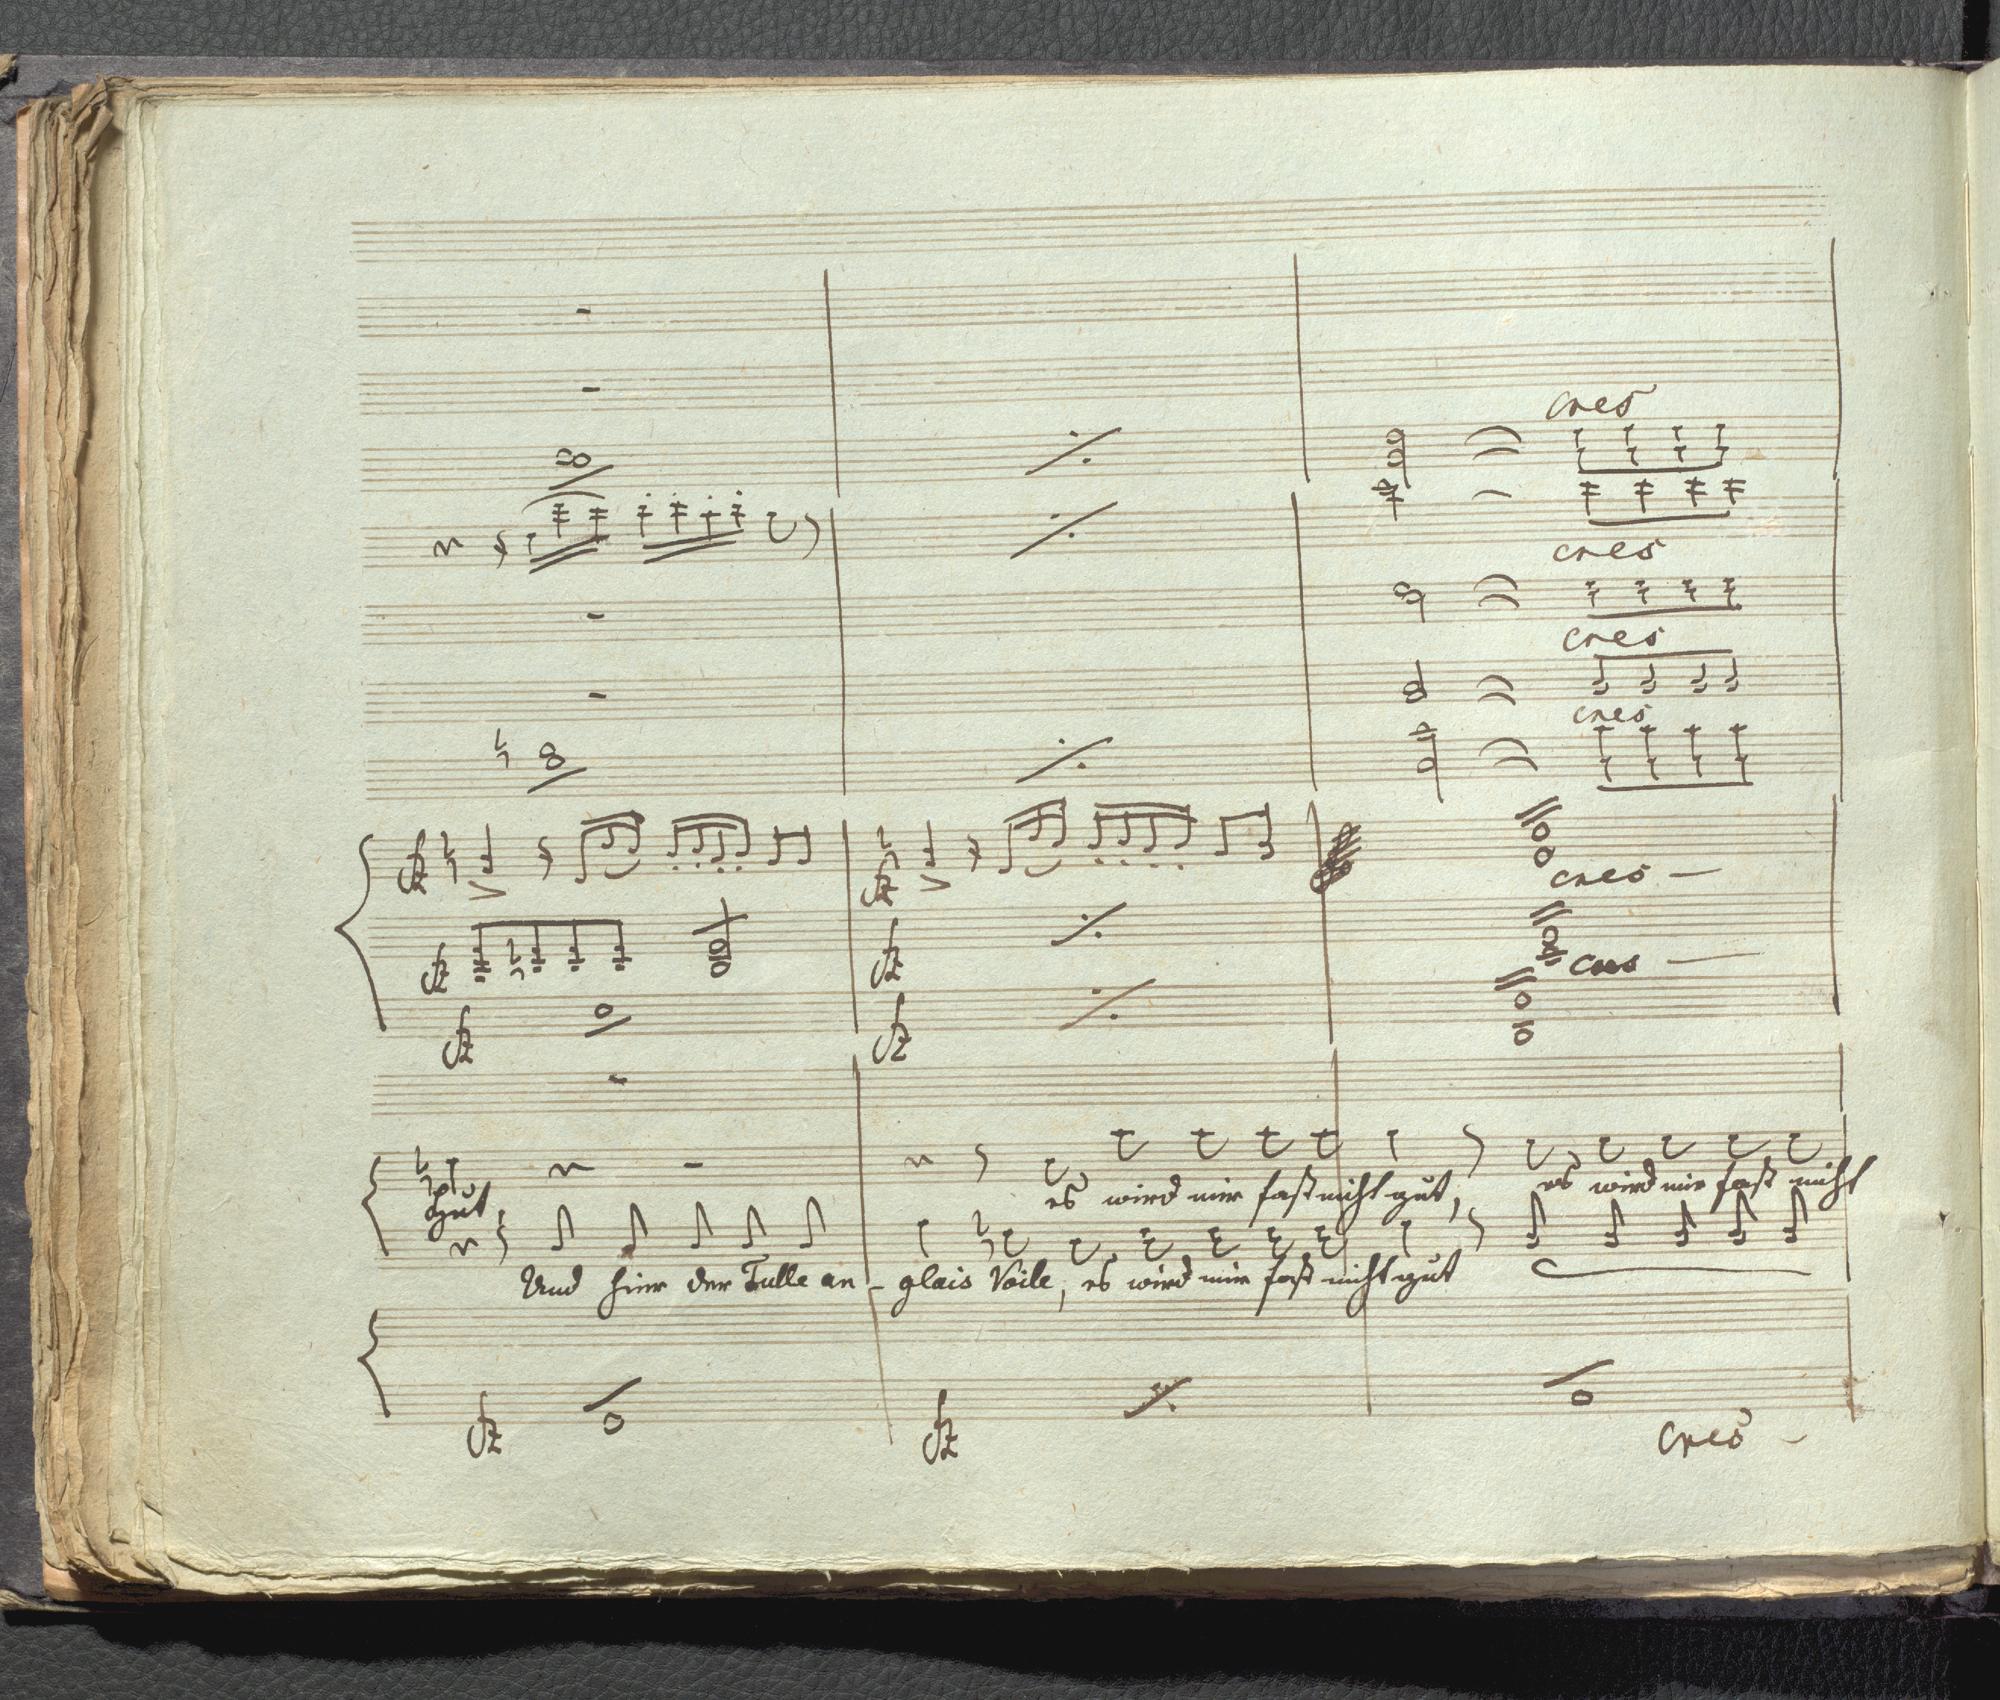 cres
cres
cres
cres
fz fz cres
fz fz cres
fz fz
gut, es wird mir fast nicht gut, es wird mir fast nicht
Und hier der Tulle an - glais Voile, es wird mir fast nicht gut
fz fz
cres